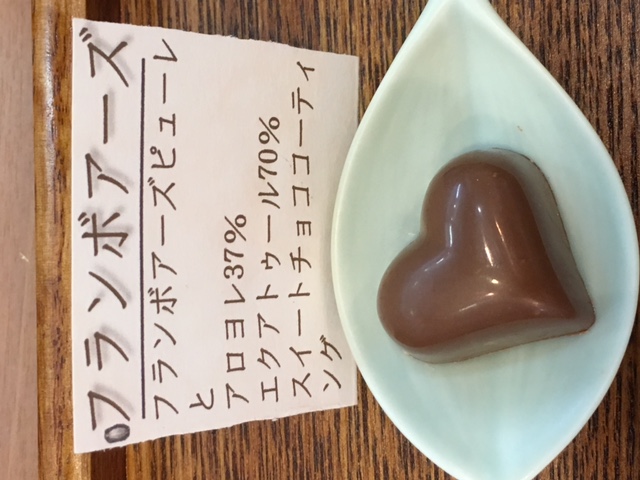 フランボアーズ
フランボアーズピューレ
と
アロヨレ37%
エクアトゥール70%
スイートチョココーティ
ング